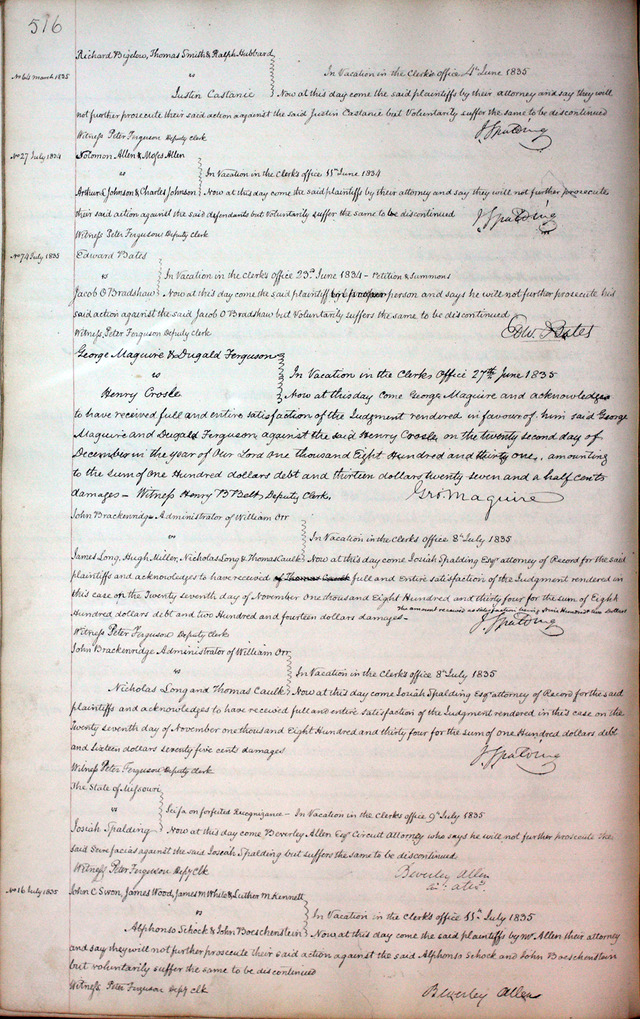 516
Richard Bigelow, Thomas Smith & Ralph Hubbard
No 64 March 1835 vs In Vacation in the Clerk's office 4th June 1835
Justin Castanie Now at this day come the said plaintiffs by their attorney and say they will
not further prosecute their said action against the said Justin Castanie but Voluntarily suffer the same to be discontinued
Witness Peter Ferguson Deputy Clerk J Spalding
No 27 July 1834 Solomon Allen & Moses Allen
vs In Vacation in the Clerks office 11th June 1834
Arthur L Johnson & Charles Johnson Now at this day come the said plaintiffs by their attorney and say they will not further prosecute
their said action against the said defendants but Voluntarily suffer the same to be discontinued
Witness Peter Ferguson Deputy Clerk J Spalding
No 74 July 1835 Edward Bates
vs In Vacation in the Clerks office 23rd June 1834 - Petition & Summons
Jacob O Bradshaw Now at this day come the said plaintiff in proper person and says he will not further prosecute his
said action against the said Jacob O Bradshaw but Voluntarily suffers the same to be discontinued
Witness, Peter Ferguson Deputy Clerk Edw. Bates
George Maguire & Dugald Ferguson
vs In Vacation in the Clerks Office 27th June 1835
Henry Crosle Now at this day come George Maguire and acknowledges
to have received full and entire satisfaction of the Judgment rendered in favour of him said George
Maguire and Dugald Ferguson against the said Henry Crosle, on the twenty second day of
December in the year of Our Lord One thousand Eight Hundred and thirty one, amounting
to the sum of One Hundred dollars debt and thirteen dollars twenty seven and a half cents
damages - Witness Henry B Belt Deputy Clerk. Geo Maguire
John Brackenridge Administrator of William Orr
In Vacation in the Clerks office 8th July 1835
James Long, Hugh Miller, Nicholas Long & Thomas Caulk Now at this day come Josiah Spalding Esqr attorney of Record for the said
plaintiffs and acknowledges to have received of Thomas Caulk full and Entire satisfaction of the Judgment rendered in
this case on the Twenty seventh day of November One thousand Eight Hundred and thirty four for the sum of Eight
Hundred dollars debt and two Hundred and fourteen dollars damages - the amount received as satisfaction being Nine Hundred two Dollars
Witness Peter Ferguson Deputy Clerk J Spalding
John Brackenridge Administrator of William Orr
vs In Vacation in the Clerks office 8th July 1835
Nicholas Long and Thomas Caulk Now at this day come Josiah Spalding Esqr attorney of Record for the said
plaintiffs and acknowledges to have received full and entire satisfaction of the Judgment rendered in this case on the
Twenty seventh day of November one thousand Eight Hundred and thirty four for the sum of one Hundred dollars debt
and sixteen dollars seventy five cent damages
Witness Peter Ferguson Deputy Clerk J Spalding
The State of Missouri
vs Scifa on forfeited Recognizance - In Vacation in the Clerks office 9th July 1835
Josiah Spalding Now at this day come Beverley Allen Esqr Circuit Attorney who says he will not further prosecute the
said Scire facias against the said Josiah Spalding but suffers the same to be discontinued
Witness Peter Ferguson Depy clk Beverley Allen
No 16 July 1835 John C Swon, James Wood, James M White & Luther M Kennett
vs In Vacation in the Clerks office 11th July 1835
Alphonso Schock & John Boeschenstein Now at this day come the said plaintiffs by Mr Allen their attorney
and say they will not further prosecute their said action against the said Alphonso Schock and John Boeschenstein
but voluntarily suffer the same to be discontinued
Witness Peter Ferguson Depy clk Beverley Allen